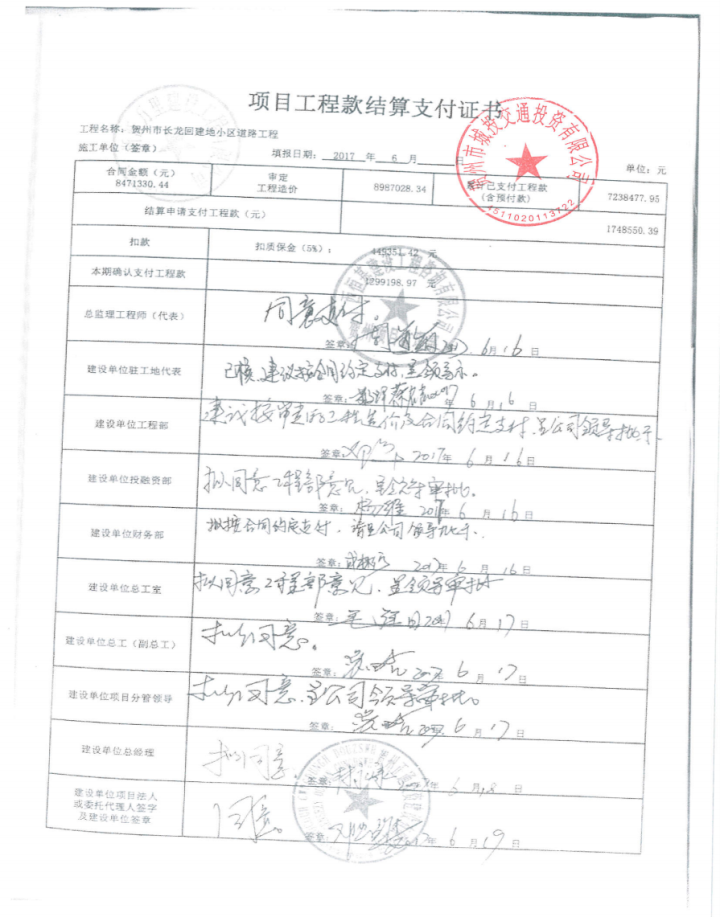 项目工程款结算支付证书
工程名称：贺州市长龙回建地小区道路工程
施工单位（签章） 填报日期： 2017 年 6 月 日 单位：元
贺州市城投交通投资有限公司
4511020113722
合同金额（元） 8471330.44 审定工程造价 8987028.34 累计已支付工程款（含预付款） 7238477.95
结算申请支付工程款（元） 1748550.39
扣款 扣质保金（5%）： 449351.42 元
本期确认支付工程款 1299198.97 元
总监理工程师（代表） 同意支付。
签章： 6 月 16 日
建设单位驻工地代表 已核，建议按合同约定支付，呈领导示。
签章： 年 6 月 16 日
建设单位工程部 建议按审定的工程造价及合同约定支付，呈公司领导批示
签章： 2017 年 6 月 16 日
建设单位投融资部 拟同意工程部意见，呈领导审批。
签章： 杨维 2017 6 月 16 日
建设单位财务部 拟按合同约定支付，请呈公司领导批示。
签章： 2017年 6 月 16 日
建设单位总工室 拟同意工程部意见，呈领导审批
签章： 2017 6 月 17 日
建设单位总工（副总工） 拟同意。
签章： 2017 6 月 17 日
建设单位项目分管领导 拟同意，呈公司领导审批。
签章： 2017 6 月 17 日
建设单位总经理 拟同意。
签章： 6 月 18 日
建设单位项目法人
或委托代理人签字
及建设单位签章 同意。
签章： 2017年 6 月 19 日